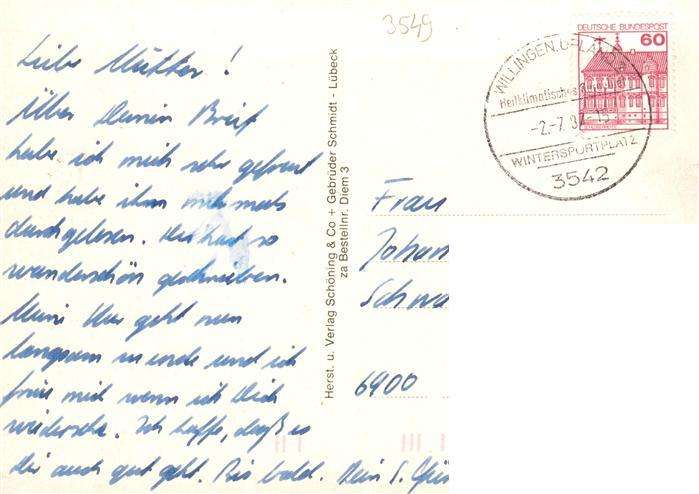 3549
Liebe Mutter!
Über Deinen Brief
habe ich mich sehr gefreut
und habe ihn mehrmals
durchgelesen. Du hast so
wunderschön geschrieben.
Meine Kur geht nun
langsam zu ende und ich
freue mich wenn ich Dich
wiedersehe. Ich hoffe, daß es
Dir auch gut geht. Bis bald. Dein
Herst. u. Verlag Schöning & Co + Gebrüder Schmidt - Lübeck
za Bestellnr. Diem 3
DEUTSCHE BUNDESPOST
60
WILLINGEN
Heilklimatisches
-2.-7.
WINTERSPORTPLATZ
3542
Frau
Johan
Schwa
6900